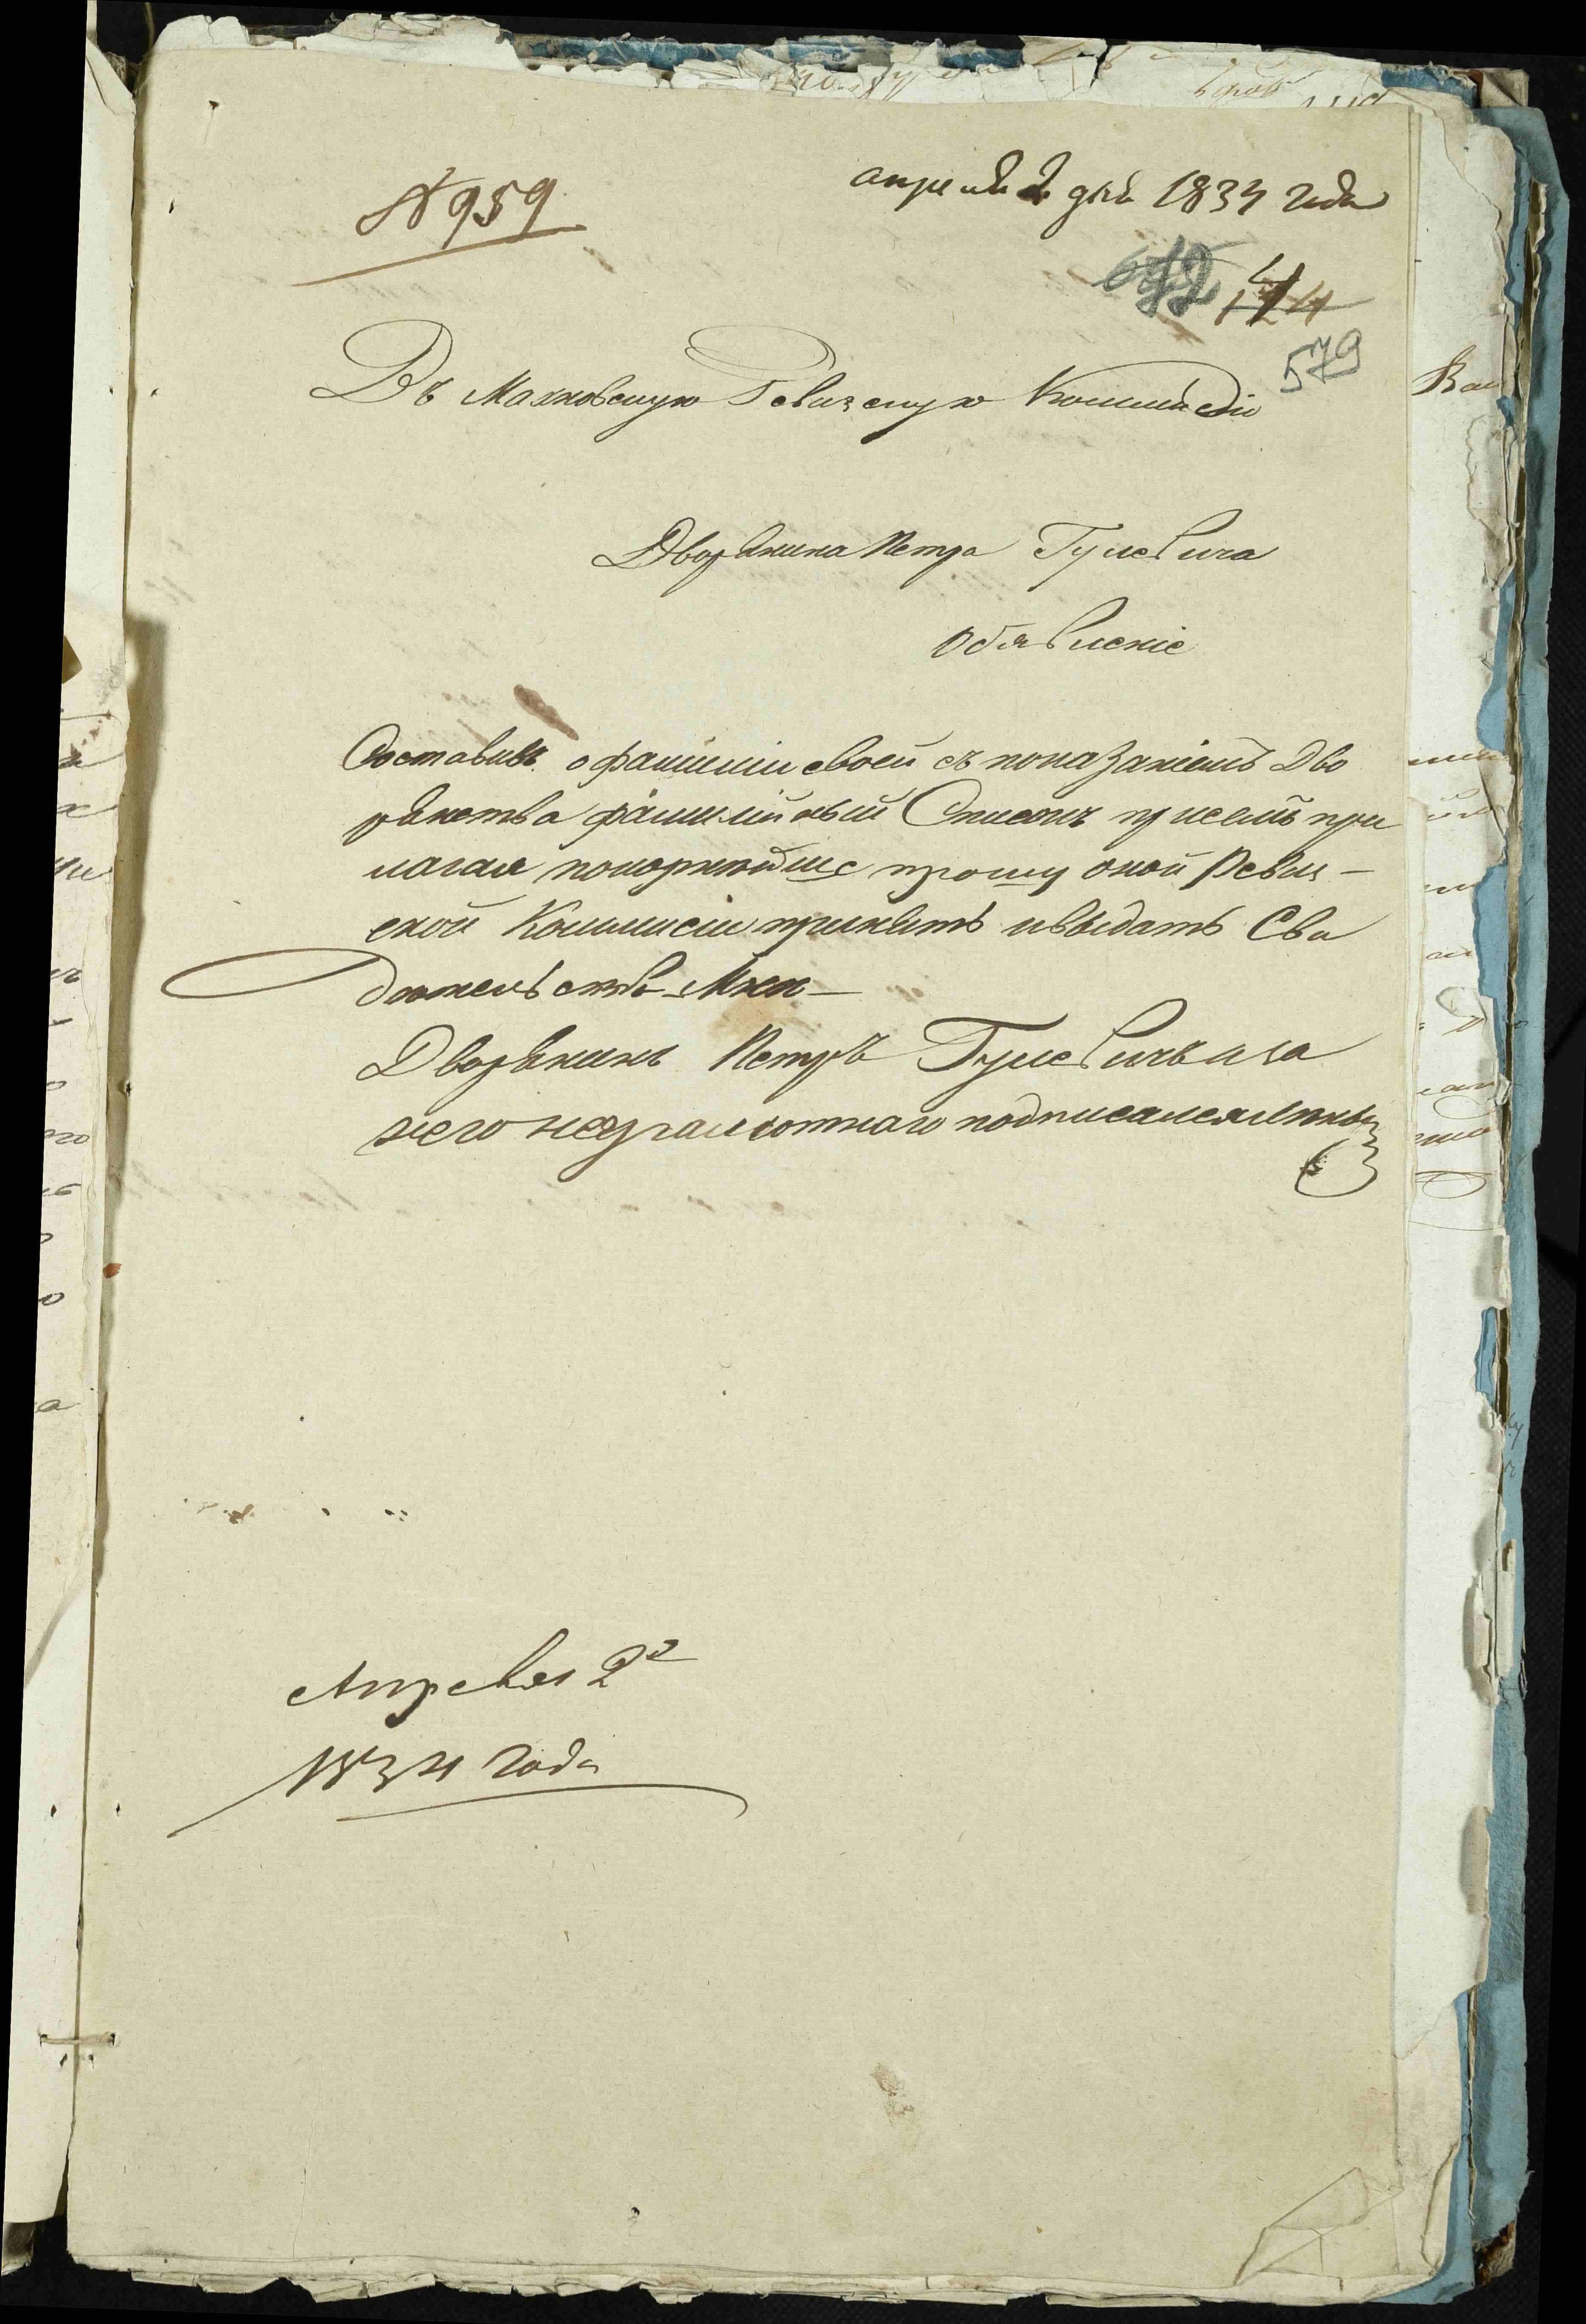 № 959
апреля 2 дня 1834 года
579
Въ Махновскую Ревизскую Коммисію
Дворянина Петра Гулевича
Объявленіе
Составивъ о фамиліи своей съ показаніемъ Дво
рянства фамилійный Списокъ при семъ при
лагая покорнейше прошу оной Ревиз-
ской Коммисіи принять и выдать Сви
дѣтельство Мнѣ-
Дворянинъ Петръ Гулевичъ и за
него неграмотнаго подписался
Апреля 2го
1834 года